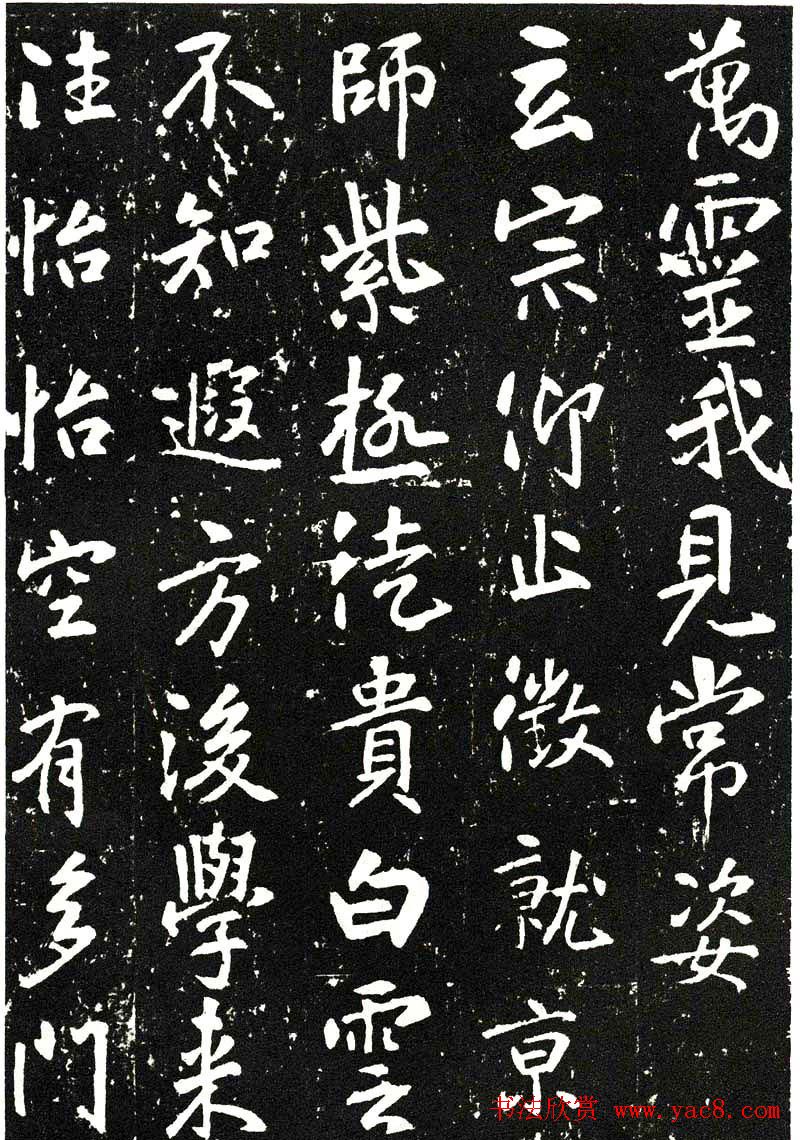 萬靈我見常姿
玄宗仰止徵就京
師紫極徒貴白雲
不知遐方後學来
往怡怡空有多門
书法欣赏 www.yac8.com